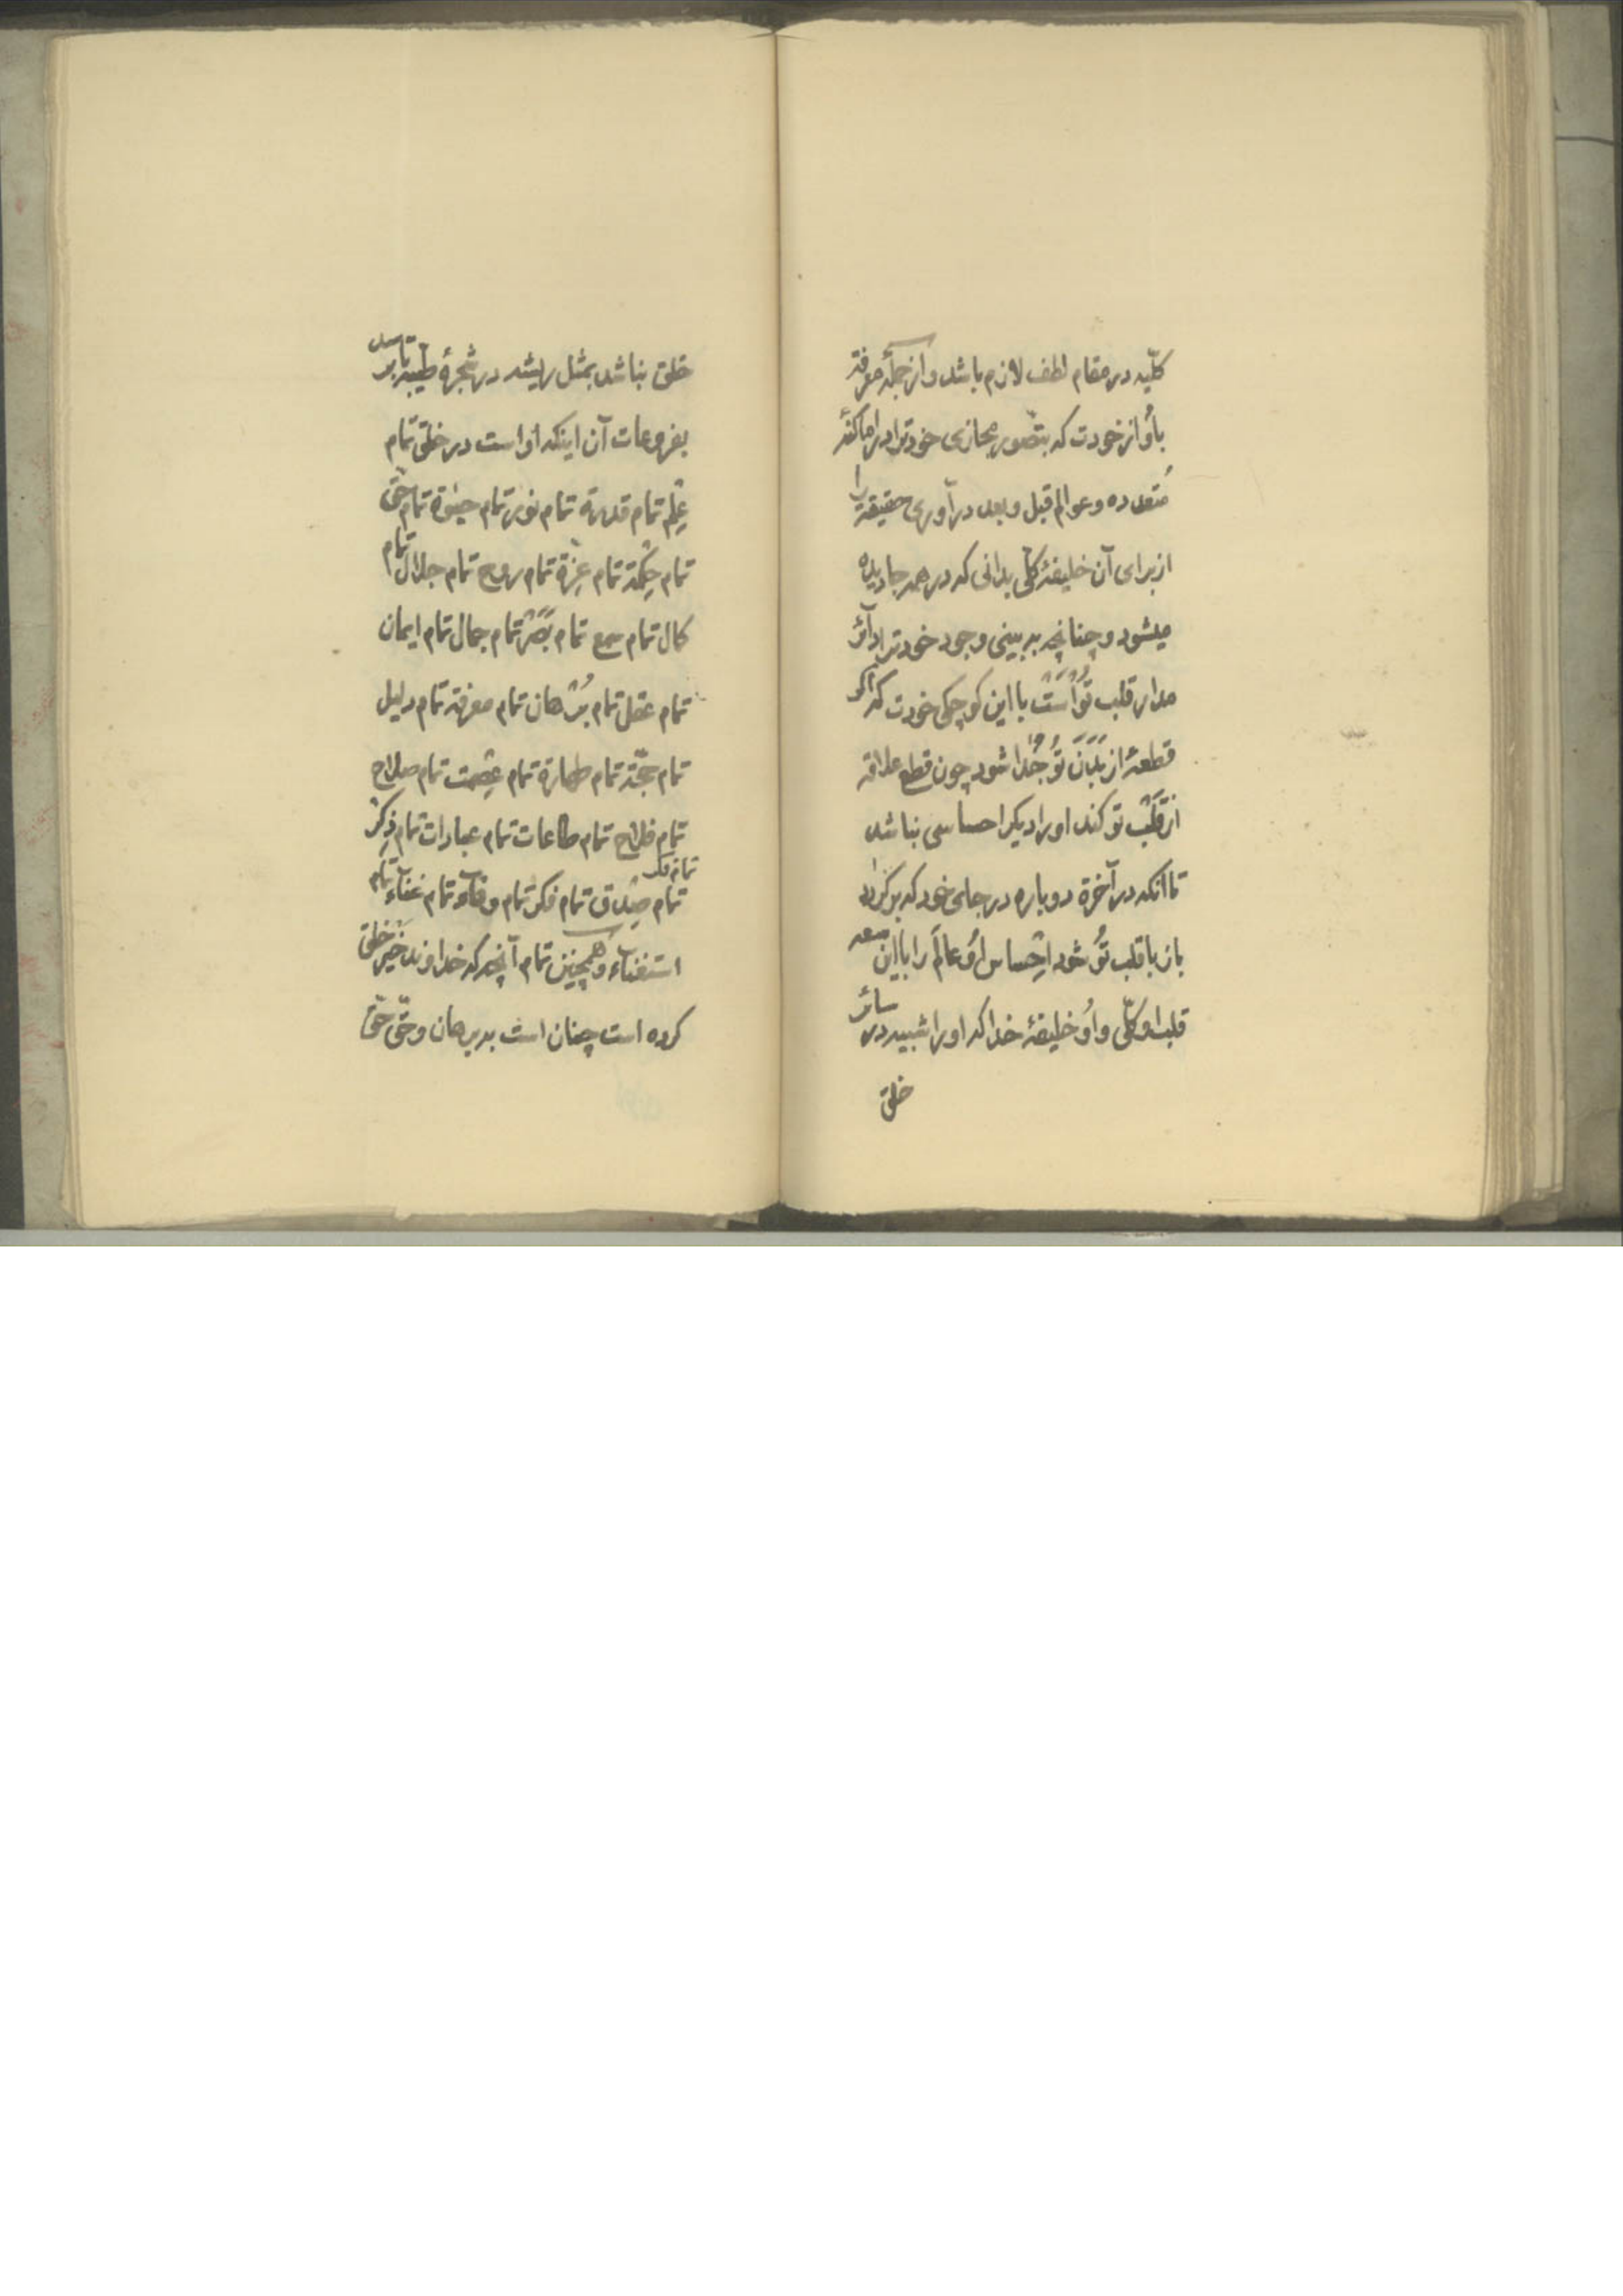 کلّیه در مقام لطف لازم باشد و از جملهٔ معرفة
باُو از خودت که بتصویر مجازی خودترا در اماکنهٔ
مُتعدده و عوالم قبل و بعد درآوری حقیقة را
از برای آن خلیفهٔ کلّی بدانی که در همه جا دیده
میشود و چنانچه به بینی وجود خودترا دائر
مدار قلب تُو اَسْت با این کوچکی خودت که اگر
قطعهٔ از بَدَن تُو جُدا شود چون قطع علاقه
از قَلْب تو کند او را دیگر احساسی نباشد
تا انکه در آخرة دوباره در جای خود که برگردد
باز با قلب تُو شود اِحْساس اوُ عالَم را با این معه
قلب او کلّی و اوُ خلیفهٔ خدا که او را شبیه در سائر
خلق
خلق نباشد بمثل ریشه در شجرهٔ طیّبه تا برسد
بفروعات آن اینکه اُو است در خلق تمام
عِلْم تمام قدرة تمام نور تمام حیٰوة تمام حقّ
تمام حِکْمة تمام عِزّة تمام روح تمام جلال تمام
کمال تمام سمع تمام بَصَرْ تمام جمال تمام ایمان
تمام عقل تمام بُرْهان تمام معرفة تمام دلیل
تمام حجّة تمام طهارة تمام عِصْمت تمام صلاح
تمام فلاح تمام طاعات تمام عبادات تمام ذِکْر
تمام صِدْق تمام فکر تمام وفاء تمام غناء تمام
استغناء و همچنین تمام آنچه که خداوند خَیْر خلق
کرده است چنان است بدبرهان و حتّی حتّی